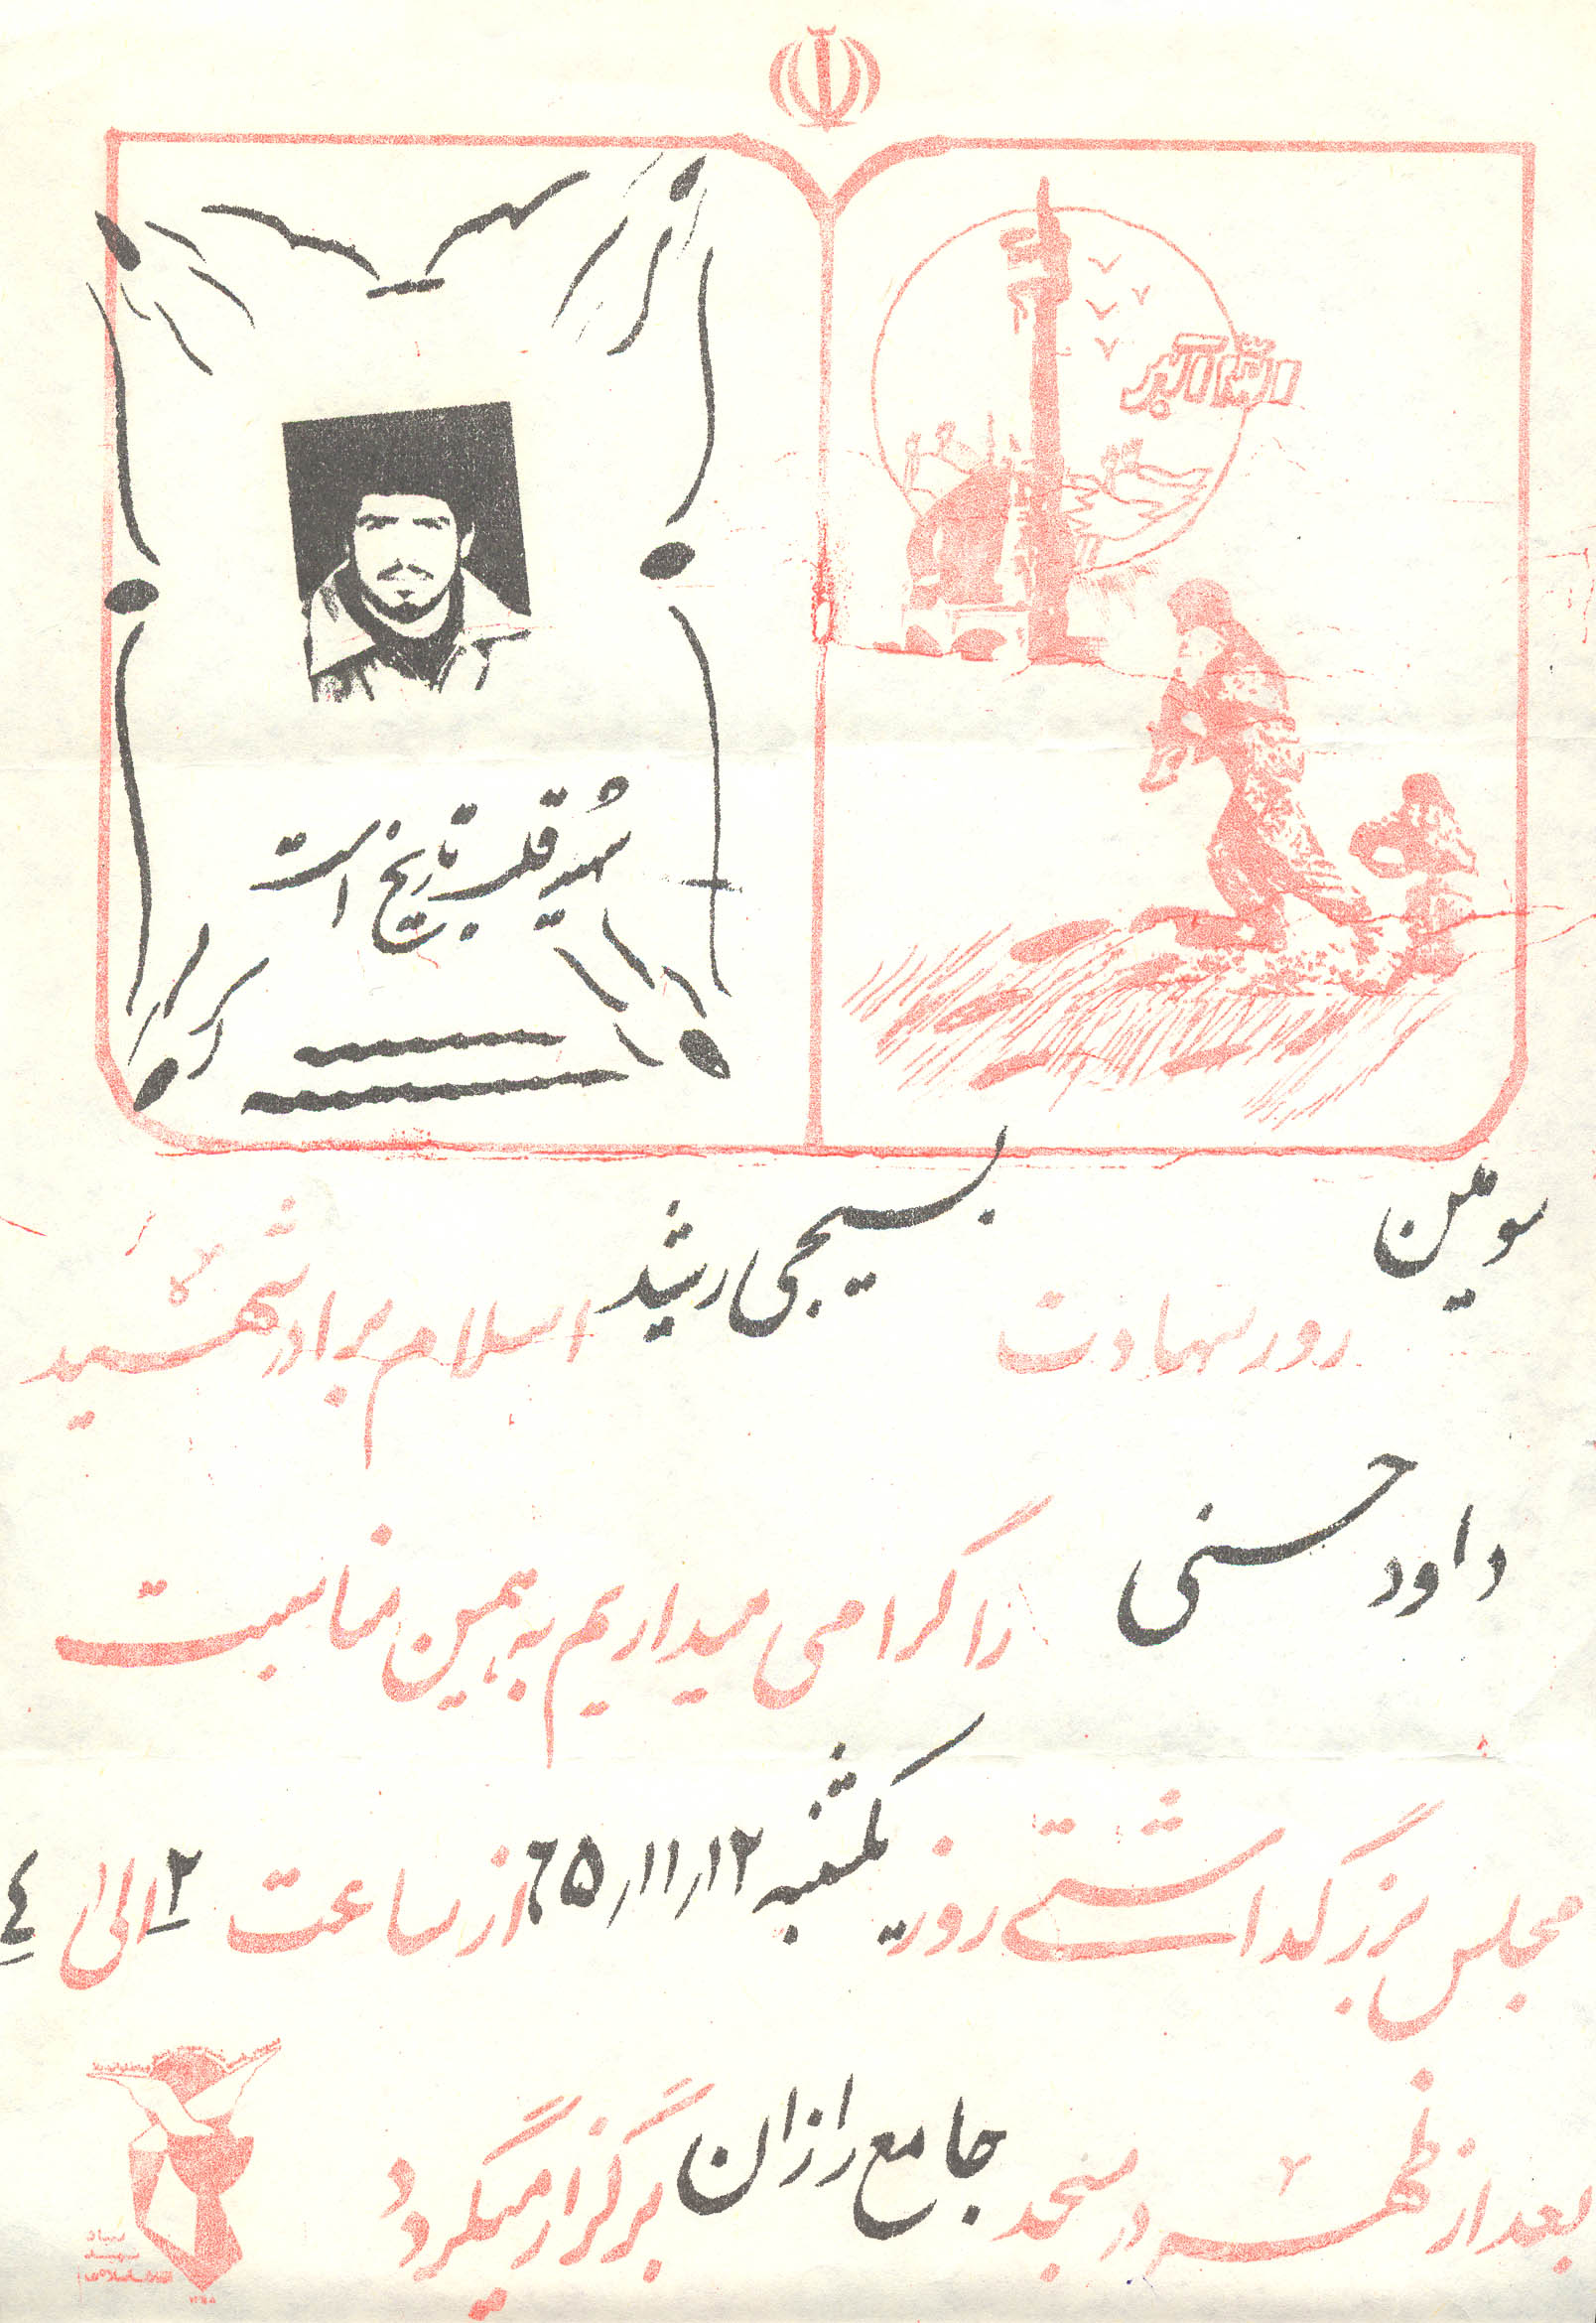 الله اکبر
شهید قلب تاریخ است
سومین روز شهادت بسیجی رشید اسلام برادر شهید
داود حسنی را گرامی میداریم به همین مناسبت
مجلس بزرگداشتی روز یکشنبه ۶۵٫۱۱٫۱۲ از ساعت ۲ الی ٤
بعد از ظهر در مسجد جامع رازان برگزار میگردد
بنیاد
شهید